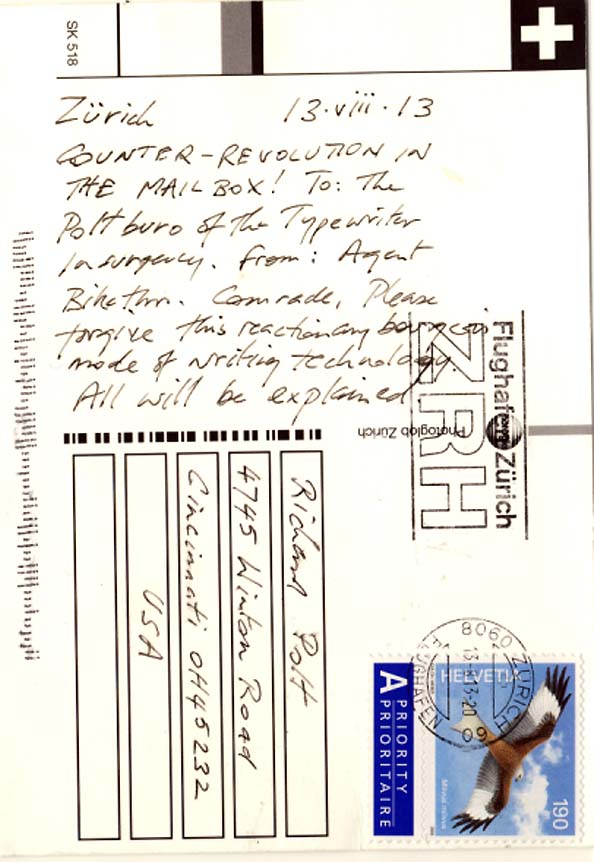 SK 518
Zürich 13.viii.13
COUNTER-REVOLUTION IN
THE MAILBOX! To: The
Poltburo of the Typewriter
Insurgency. From: Agent
Comrade, Please
forgive this reactionary bourgeois
mode of writing technology.
All will be explained
Photoglob Zürich
Flughafen Zürich
ZRH
Richard Polt
4745 Winton Road
Cincinnati OH 45232
USA
8060 ZÜRICH
FLUGHAFEN
HELVETIA
190
Milvus milvus
A PRIORITY
PRIORITAIRE